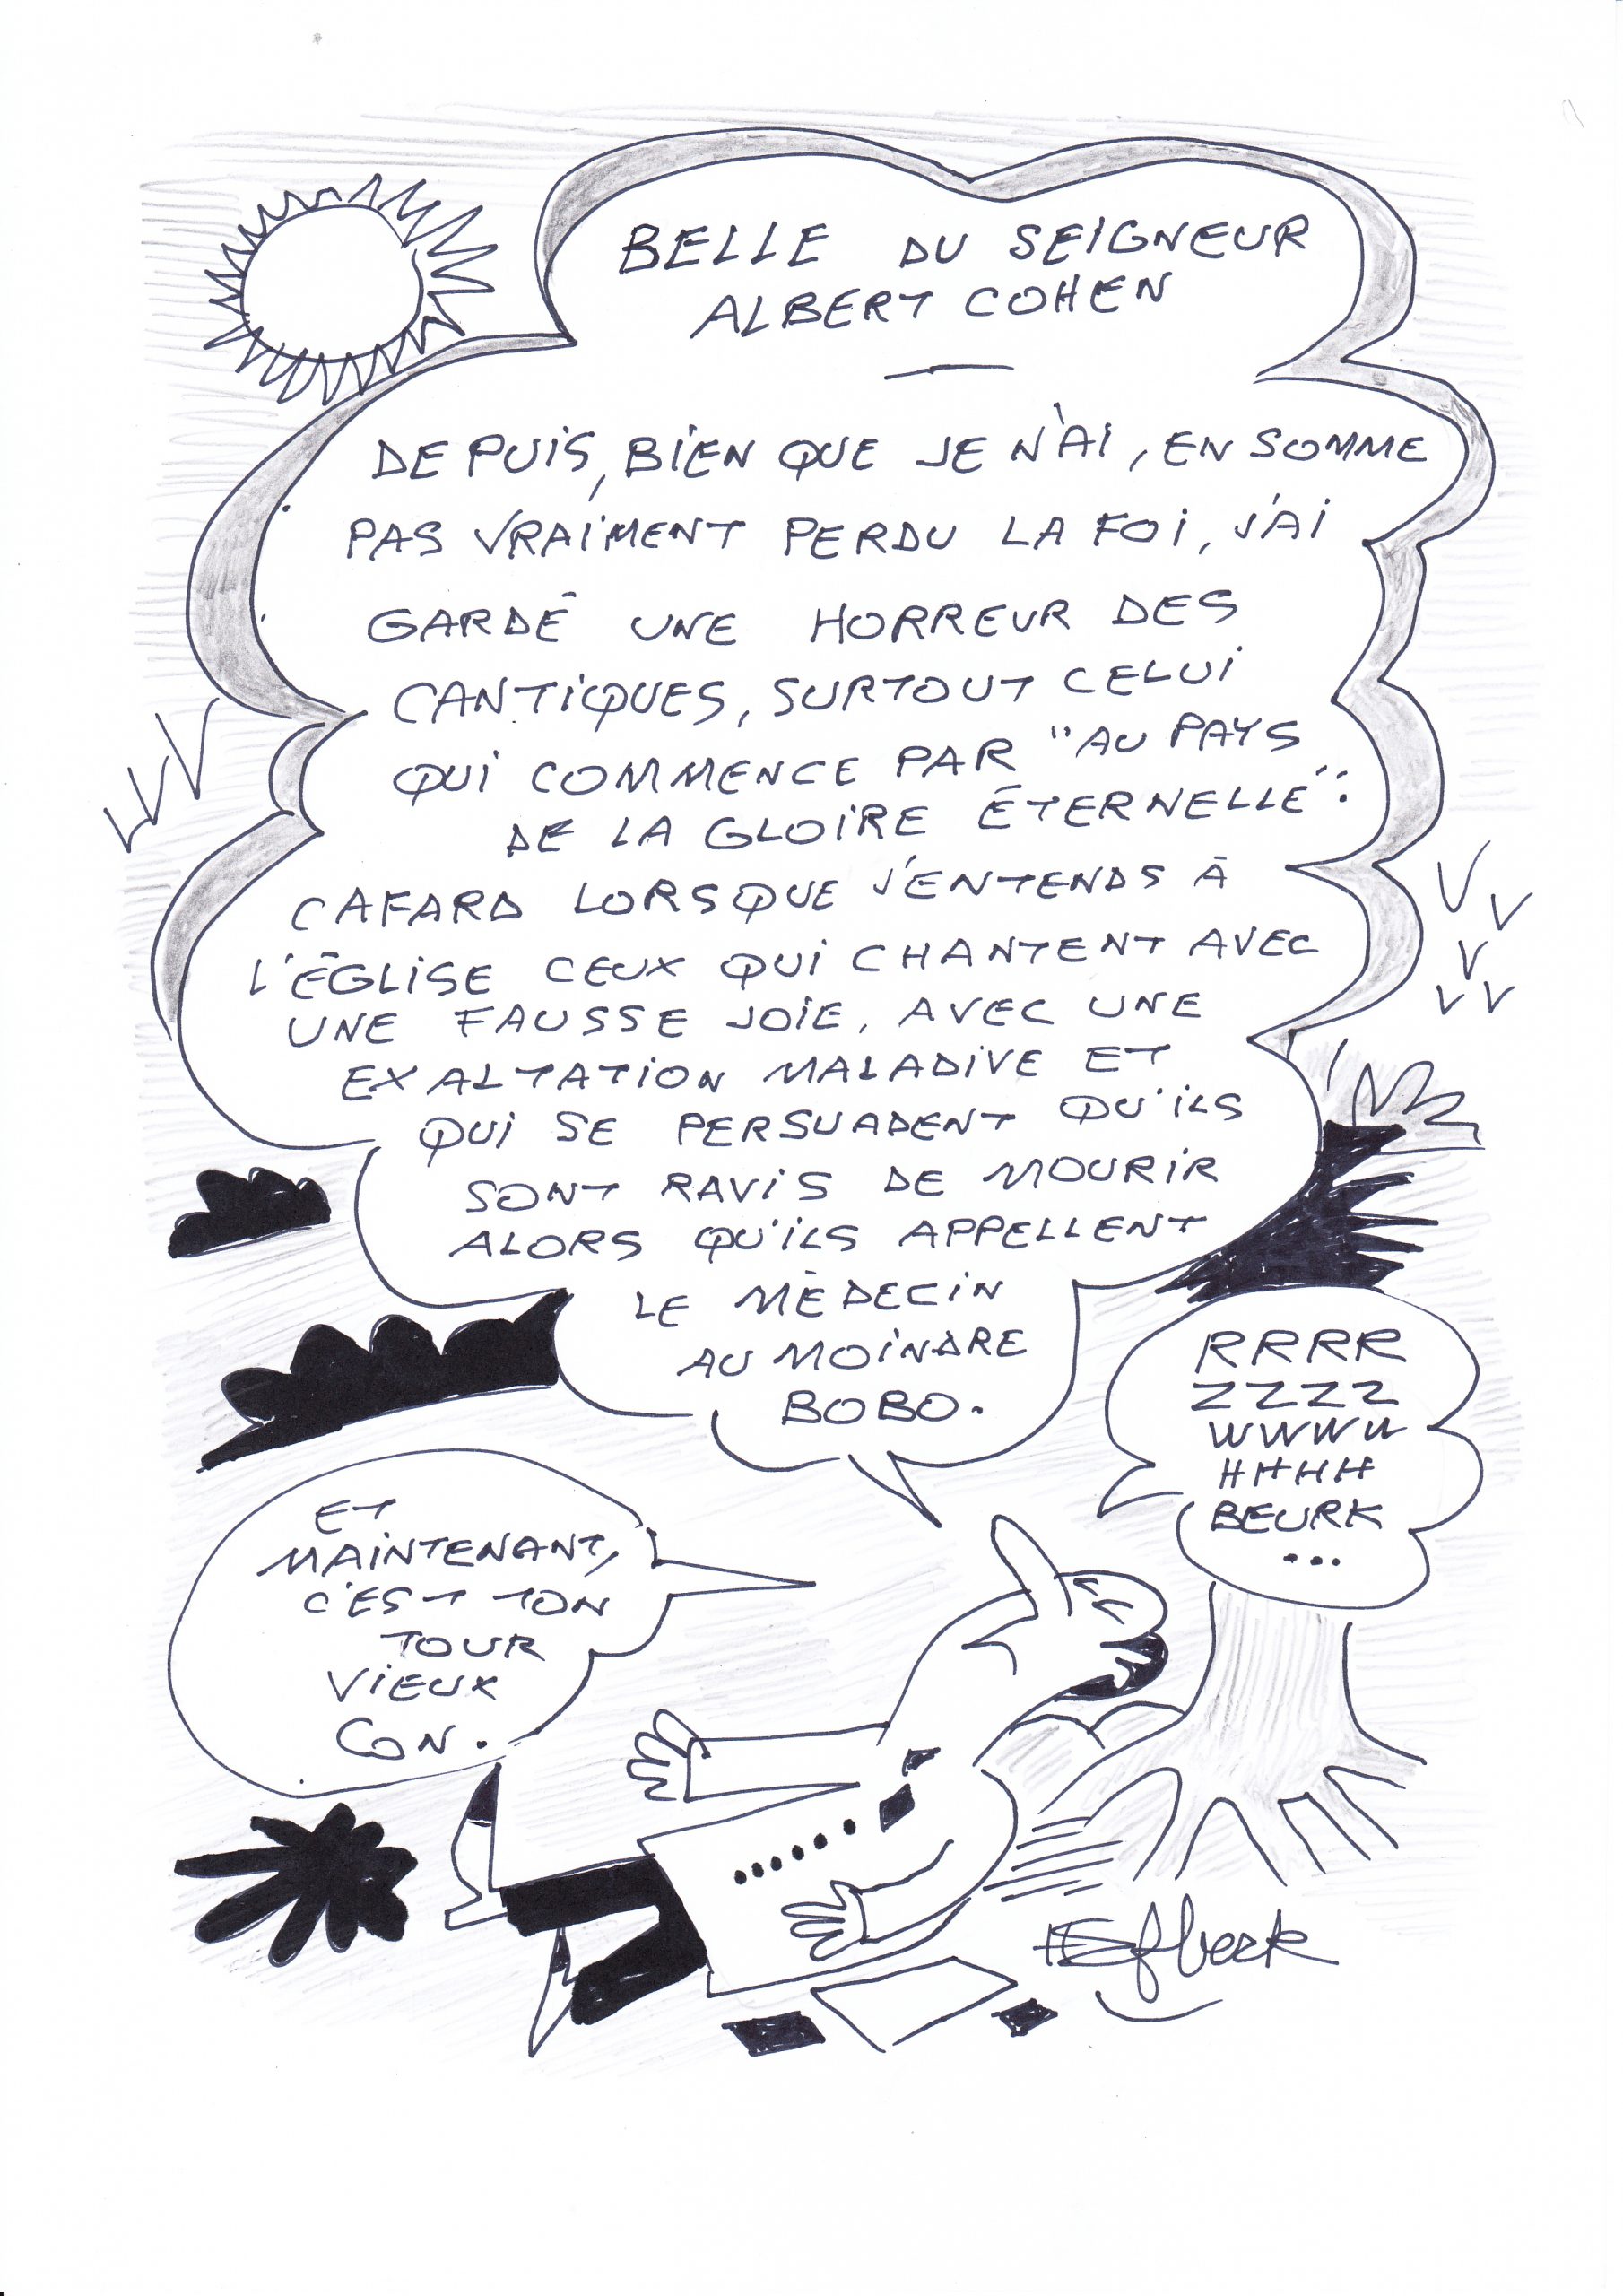 BELLE DU SEIGNEUR
ALBERT COHEN
DEPUIS, BIEN QUE JE N'AI, EN SOMME
PAS VRAIMENT PERDU LA FOI, J'AI
GARDÉ UNE HORREUR DES
CANTIQUES, SURTOUT CELUI
QUI COMMENCE PAR "AU PAYS
DE LA GLOIRE ÉTERNELLE":
CAFARD LORSQUE J'ENTENDS À
L'ÉGLISE CEUX QUI CHANTENT AVEC
UNE FAUSSE JOIE, AVEC UNE
EXALTATION MALADIVE ET
QUI SE PERSUADENT QU'ILS
SONT RAVIS DE MOURIR
ALORS QU'ILS APPELLENT
LE MÈDECIN
AU MOINDRE
BOBO.
RRRR
ZZZZ
WWWW
HHHH
BEURK
...
ET
MAINTENANT,
C'EST TON
TOUR
VIEUX
CON.